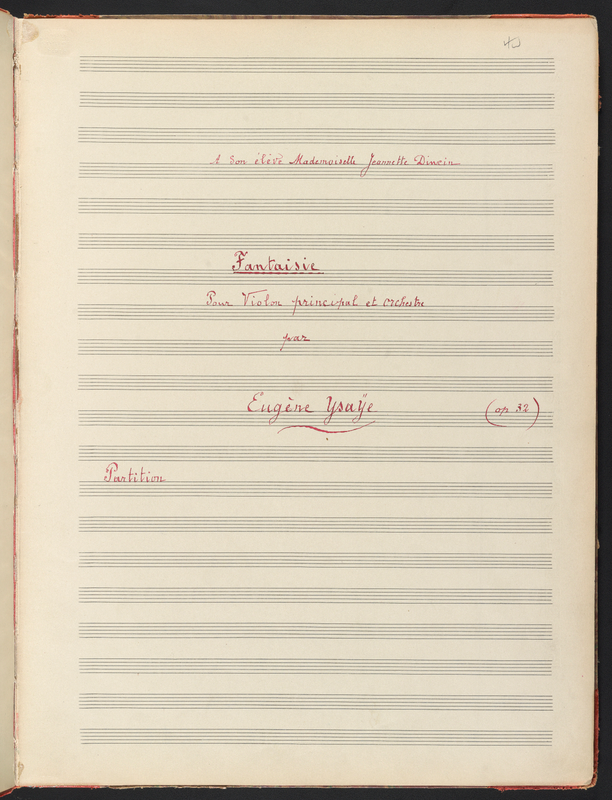 A Son élève Mademoiselle Jeannette Dincin
Fantaisie
Pour Violon principal et Orchestre
par
Eugène Ysaÿe
(op 32)
Partition